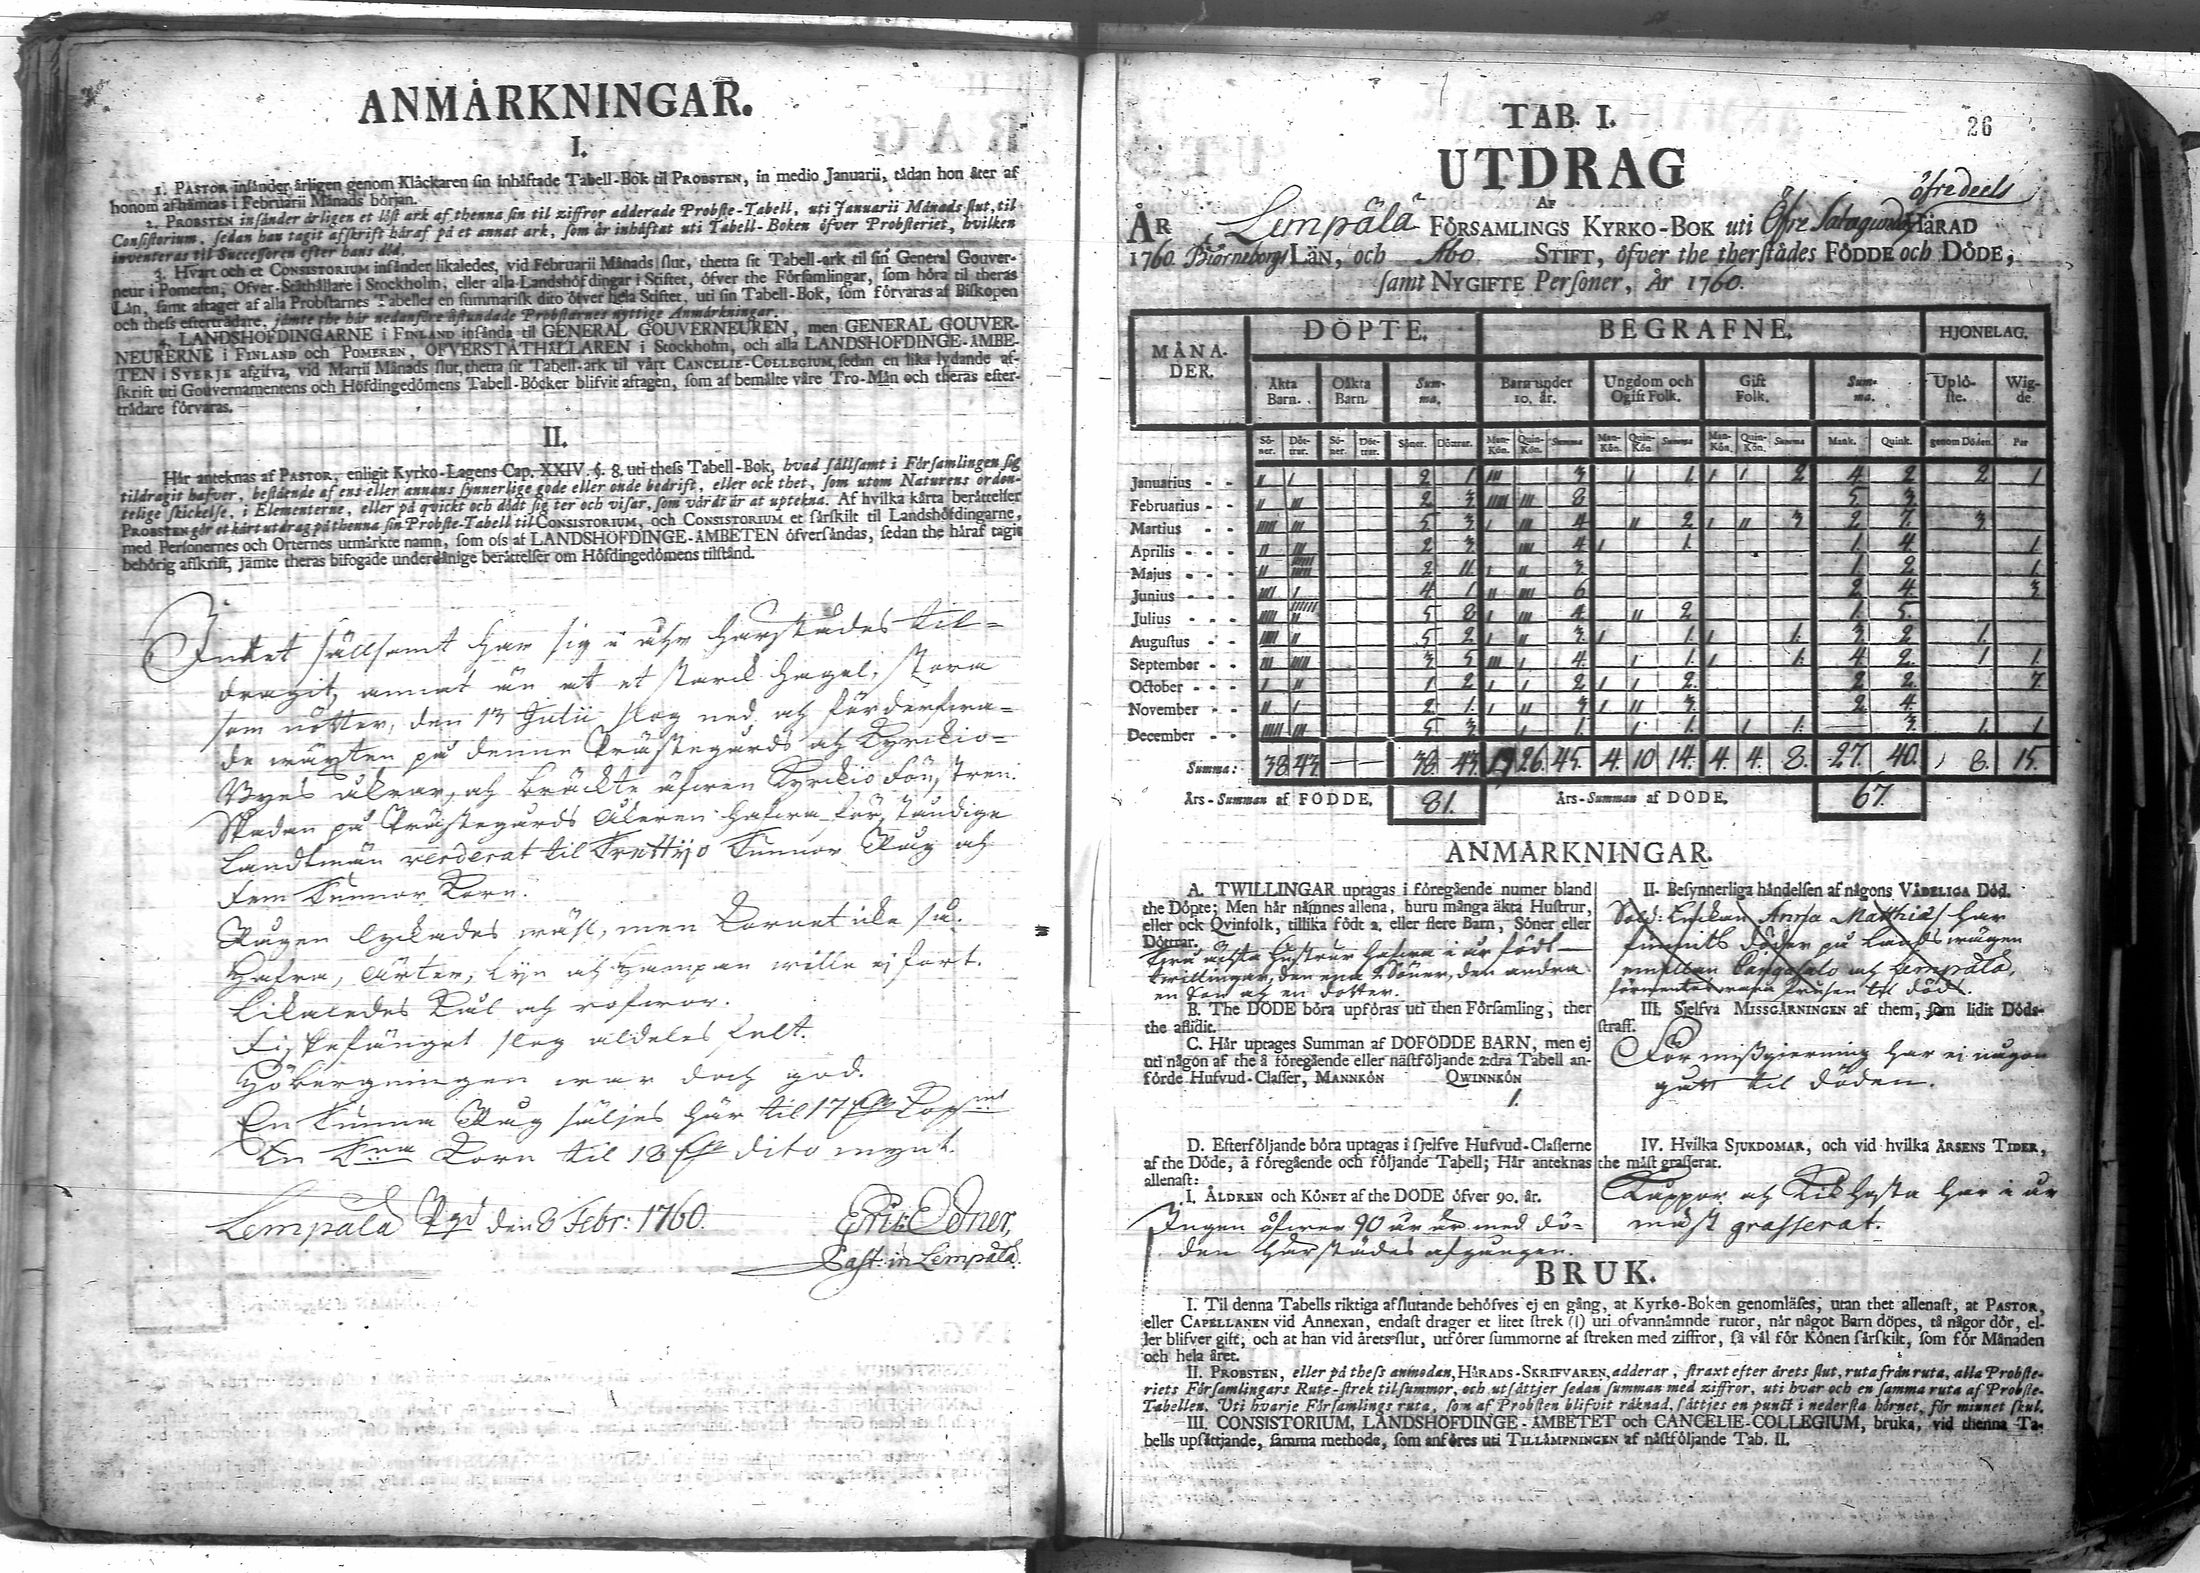 ANMÄRKNINGAR.
I.
1. PASTOR insänder årligen genom Klåckaren sin inhäftade Tabell-Bok til PROBSTEN, in medio Januarii, tådan hon åter af
honom afhämtas i Februarii Månads början.
2. PROBSTEN insänder årligen et löst ark af thenna sin til ziffror adderade Probste-Tabell, uti Januarii Månads slut, til
Consistorium, sedan han tagit afskrift häraf på et annat ark, som är inhäftat uti Tabell-Boken öfver Probsteriet, hvilken
inventeras til Successoren efter hans död.
3. Hvart och et CONSISTORIUM insänder likaledes, vid Februarii Månads slut, thetta sit Tabell-ark til sin General Gouver-
neur i Pomeren, Öfver-Ståthållare i Stockholm, eller alla Landshöfdingar i Stiftet, öfver the Församlingar, som höra til theras
Län, samt aftager af alla Probstarnes Tabeller en summarisk dito öfver hela Stiftet, uti sin Tabell-Bok, som förvaras af Biskopen
och thess efterträdare, jämte the här nedanföre åstundade Probstarnes nyttige Anmärkningar.
4. LANDSHÖFDINGARNE i FINLAND insända til GENERAL GOUVERNEUREN, men GENERAL GOUVER-
NEURERNE i FINLAND och POMEREN, ÖFVERSTÅTHÅLLAREN i Stockholm, och alla LANDSHÖFDINGE-ÄMBE-
TEN i SVERJE afgifva, vid Martii Månads slut, thetta sit Tabell-ark til vårt CANCELIE-COLLEGIUM, sedan en lika lydande af-
skrift uti Gouvernamentens och Höfdingedömens Tabell-Böcker blifvit aftagen, som af bemälte våre Tro-Män och theras efter-
trädare förvaras.
II.
Här anteknas af PASTOR, enligit Kyrko-Lagens Cap. XXIV. §. 8. uti thess Tabell-Bok, hvad sällsamt i Församlingen sig
tildragit hafver, bestående af ens eller annans synnerlige gode eller onde bedrift, eller ock thet, som utom Naturens orden-
telige skickelse, i Elementerne, eller på qvickt och dödt sig ter och visar, som värdt är at uptekna. Af hvilka kårta berättelser
PROBSTEN gör et kårt utdrag på thenna sin Probste-Tabell til CONSISTORIUM, och CONSISTORIUM et särskilt til Landshöfdingarne,
med Personernes och Orternes utmärkte namn, som oss af LANDSHÖFDINGE-ÄMBETEN öfversändas, sedan the häraf tagit
behörig afskrift, jämte theras bifogade underdånige berättelser om Höfdingedömens tilstånd.
Intet sällsamt har sig i åhr härstädes til-
dragit, annat än at et starck hagel, stora
som nötter, den 13 Julii slog ned och förderfwa-
de wäxten på denne Prästegårds och Kyrckio-
Byes åkrar, och bräckte äfwen Kyrckio fönstren.
Skadan på Prästegårds Åkeren hafwa förståndige
Landtmän verderat til Trettijo Tunnor Råg och
fem Tunnor Korn.
Rågen lyckades wäl, men Kornet icke så.
Hafra, Ärter, Lijn och Hampan wille ej fort.
Likaledes Kål och rofwor.
Fiskefånget slog aldeles felt.
Höbergningen war doch god.
En Tunna Råg säljes här til 17 Kop mt
En Tna Korn til 18 dito mynt.
Lempälä Pgd den 8 Febr: 1760.
Eric Odner,
Past: in Lempälä.
26
TAB. I.
UTDRAG
AF
öfredeels
ÅR Lempälä FÖRSAMLINGS KYRKO-BOK uti Öfre Satagunda HÄRAD
1760. Biörneborgs LÄN, och Åbo STIFT, öfver the therstädes FÖDDE och DÖDE,
samt NYGIFTE Personer, År 1760.
MÅNA-DER. DÖPTE. BEGRAFNE. HJONELAG.
Äkta Barn. Oäkta Barn. Summa. Barn under 10. år. Ungdom och Ogift Folk. Gift Folk. Summa. Uplöste. Wigde.
Söner. Döttrar. Söner. Döttrar. Söner. Döttrar. Mankön. Quinkön. Summa Mankön. Quinkön. Summa Mankön. Quinkön. Summa Mank. Quink. genom Döden. Par
Januarius - - II I 2 1 III 3 I 1 I I 2 4 2 2 1
Februarius - - II III 2 3 IIIII III 8 5 3
Martius - - IIIII III 5 3 I III 4 II 2 I II 3 2 7. 3
Aprilis - - - II III 2 3 IIII 4 I 1. 1. 4. 1.
Majus - - - II 2 11. I II 3 1 2 1.
Junius - - - IIII I 4 1 II IIII 6 2 4. 3
Julius - - - IIIII 5 8 I III 4. II 2 1. 5.
Augustus - - IIIII II 5 2 I II 3. I 1. I 1. 3. 2 1.
September - - III IIIII 3 5 III I 4. I 1. I 1. 4 2. 1 1.
October - - - I II 1 2 I I 2 I I 2. 2 2. 7.
November - - II I 2 1. I II 3 I II 3. 2 4.
December - - IIIII III 5 3 I 1. I 1. I 1. 3. 1. 1
Summa: 38. 43. — — 38. 43. 19 26. 45. 4. 10 14. 4. 4. 8. 27. 40. 8. 15.
Års-Summan af FÖDDE. 81. Års-Summan af DÖDE. 67.
ANMÄRKNINGAR.
A. TWILLINGAR uptagas i föregående numer bland
the Döpte; Men här nämnes allena, huru många äkta Hustrur,
eller ock Qvinfolk, tillika födt 2. eller flere Barn, Söner eller
Döttrar.
Twå ächta Hustrur hafwa i år födt
twillingar, den ena 2 Söner, den andra
en Son och en dotter.
B. The DÖDE böra upföras uti then Församling, ther
the aflidit.
C. Här uptages Summan af DÖFÖDDE BARN, men ej
uti någon af the å föregående eller nästföljande 2:dra Tabell an-
förde Hufvud-Classer, MANNKÖN QWINNKÖN
1.
D. Efterföljande böra uptagas i sjelfve Hufvud-Classerne
af the Döde, å föregående och följande Tabell; Här anteknas
allenast:
I. ÅLDREN och KÖNET af the DÖDE öfver 90. år.
Ingen öfwer 90 år är med dö-
den härstädes afgången.
II. Besynnerliga händelsen af någons VÅDELIGA Död.
Sold: Enckan Anna Matthiæ har
funnits döder på Landswägen
emellan och Lempälä,
förmentes wara frusen til död.
III. Sjelfva MISSGÄRNINGEN af them, som lidit Döds-
straff.
För missgierning har ei någon
gått til döden.
IV. Hvilka SJUKDOMAR, och vid hvilka ÅRSENS TIDER,
the mäst grasserat.
Kåppor och Kikhosta har i år
mäst grasserat.
BRUK.
I. Til denna Tabells riktiga afslutande behöfves ej en gång, at Kyrko-Boken genomläses, utan thet allenast, at PASTOR,
eller CAPELLANEN vid Annexan, endast drager et litet strek (I) uti ofvannämnde rutor, när något Barn döpes, tå någor dör, el-
ler blifver gift, och at han vid årets slut, utförer summorne af streken med ziffror, så väl för Könen särskilt, som för Månaden
och hela året.
II. PROBSTEN, eller på thess anmodan, HÄRADS-SKRIFVAREN, adderar, straxt efter årets slut, ruta från ruta, alla Probste-
riets Församlingars Rute-strek til summor, och utsättjer sedan summan med ziffror, uti hvar och en samma ruta af Probste-
Tabellen. Uti hvarje Församlings ruta, som af Probsten blifvit räknad, sättjes en punct i nedersta hörnet, för minnet skul.
III. CONSISTORIUM, LANDSHÖFDINGE-ÄMBETET och CANCELIE-COLLEGIUM, bruka, vid thenna Ta-
bells upsättjande, samma methode, som anföres uti TILLÄMPNINGEN af nästföljande Tab. II.